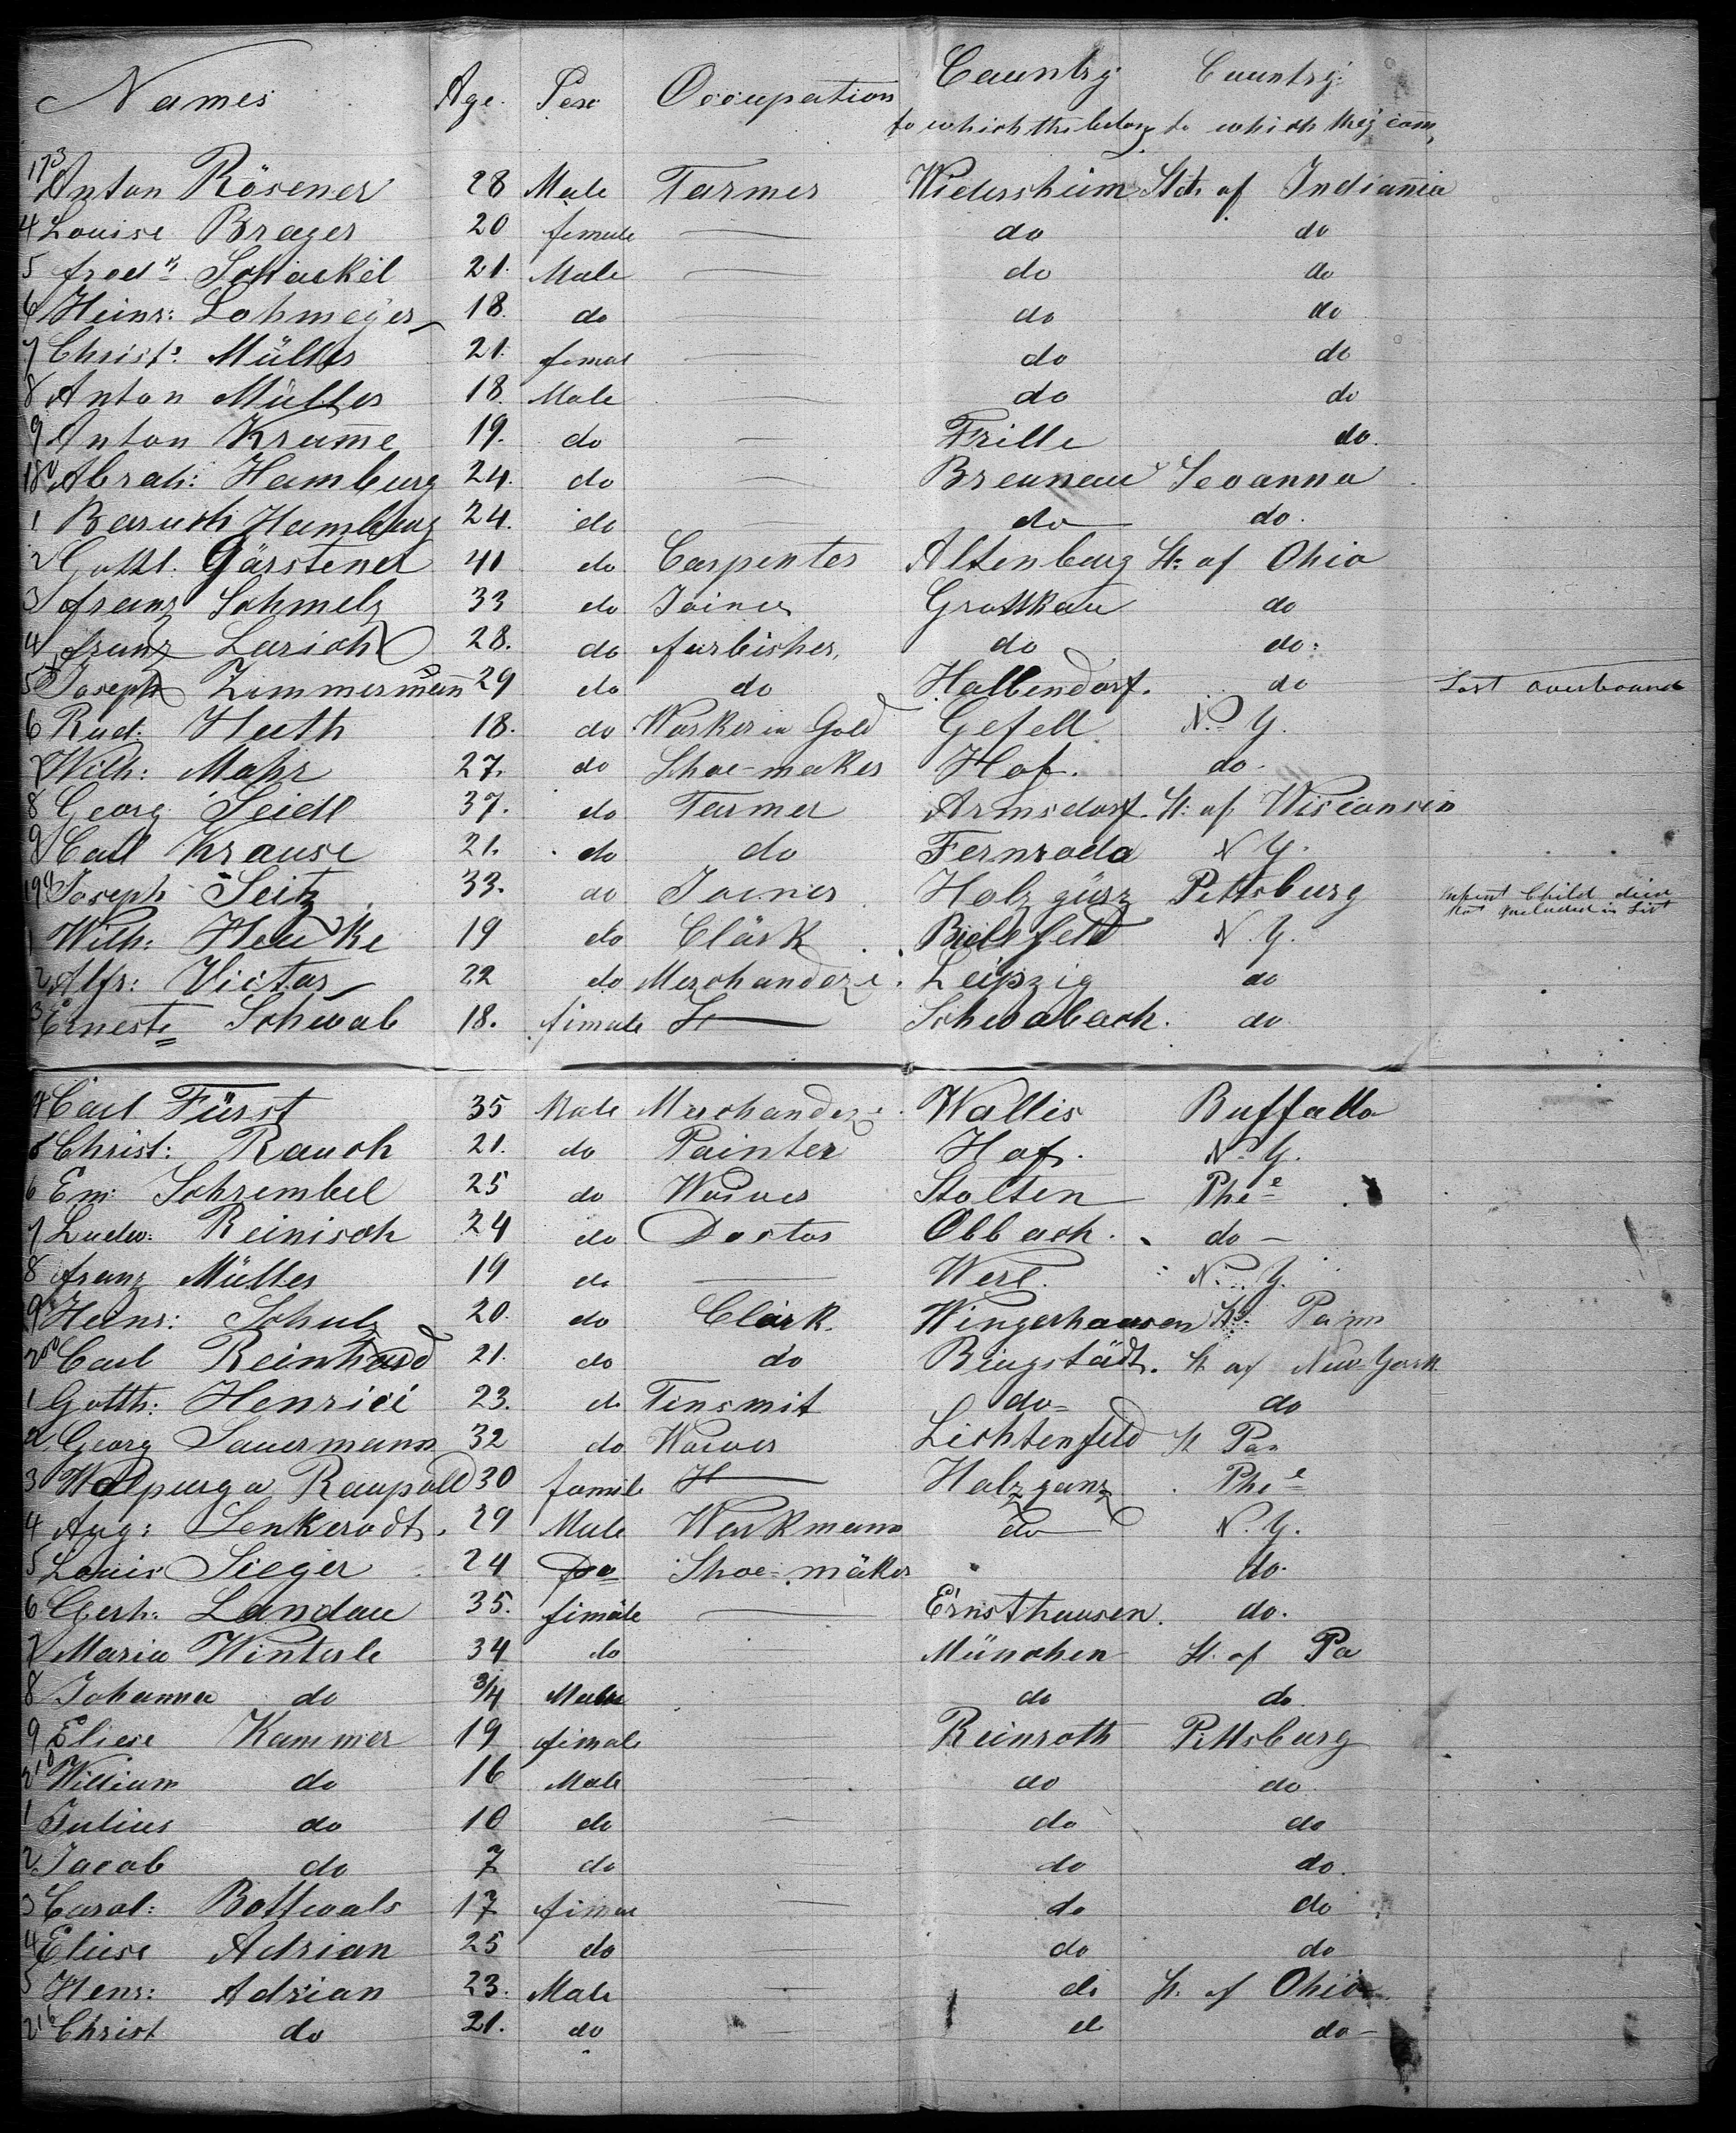 Names Age. Sex Occupation Country Country
to which the belong to which they com,
173 Anton Rösener 28 Male Farmer Widersheim Stat. of Indianna
4 Louise Brager 20 female — do do
5 fred k Schackel 21. Male — do do
6 Heinr: Lohmeyer 18. do do do
7 Christe: Müller 21. femal — do do
8 Anton Müller 18. Male — do do
9 Anton Krame 19. do — Frille do.
180 Abrah: Hamburg 24. do — Breunau Sevanna
1 Baruch Hamburg 24. do — do do.
2 Gottl. Gärstener 41 do Carpenter Altenburg St: of Ohio
3 franz Schmelz 33 do Joiner Grottkau do
4 franz Larisch 28. do furbisher, do do:
5 Joseph Zimmermann 29 do do Halbendorf. do Lost overboard
6 Rud: Huth 18. do Worker in Gold Gefell N. Y.
7 Wilh: Mahr 27. do Schoe-maker Hof. do.
8 Georg Seidl 37. do Farmer Armsdorf. St: of Wisconsin
9 Carl Krause 21. do do Fernroda N Y.
190 Joseph Seitz 33. do Joiner Holzgünz Pittsburg Infant Child died
Not included in List
1 Wilh: Heucke 19 do Clärk Bielefeld N. Y.
2 Alfr: Victor 22 do Merchandeze. Leipzig do
3 Erneste Schwab 18. fimale — Schwabach. do
4 Carl Fürst 35 Male Merchandeze. Wallis Buffallo
5 Christ: Rauch 21. do Painter Hof. N. Y.
6 Em: Schrembel 25 do Waiver Stolten Phi e
7 Ludw: Reinisch 24 do Doctor Obbach. do —
8 franz Müller 19 do — Werl. N. Y.
9 Heinr: Schulz 20. do Clärk. Wingerhausen St: Penn
200 Carl Reinhard 21. do do Bingstädt. St of New York
1 Gotth: Henrici 23. do Tinsmit do- do
2 Georg Sauermann 32 do Waiver Lichtenfeld St Pa
3 Walpurga Raupold 30 famile — Holzganz Phi e
4 Aug: Senkerodt. 29 Male Workmann do N. Y.
5 Louis Sieger 24 Do Shoe-mäker do.
6 Gerh: Landau 35. fimäle — Ernsthausen. do.
7 Maria Winterle 34 do — München St. of Pa
8 Johanna do 3/4 Male — do do.
9 Eliese Kammer 19 fimale — Reinroth Pittsburg
210 William do 16 Male — do do
1 Julius do 10 do — do do
2 Jacob do 7 do — do do.
3 Carol: Bottwals 17 fimae — do do
4 Eliese Adrian 25 do — do do
5 Henr: Adrian 23. Male — do St. of Ohio
216 Christ do 21. do — d do —